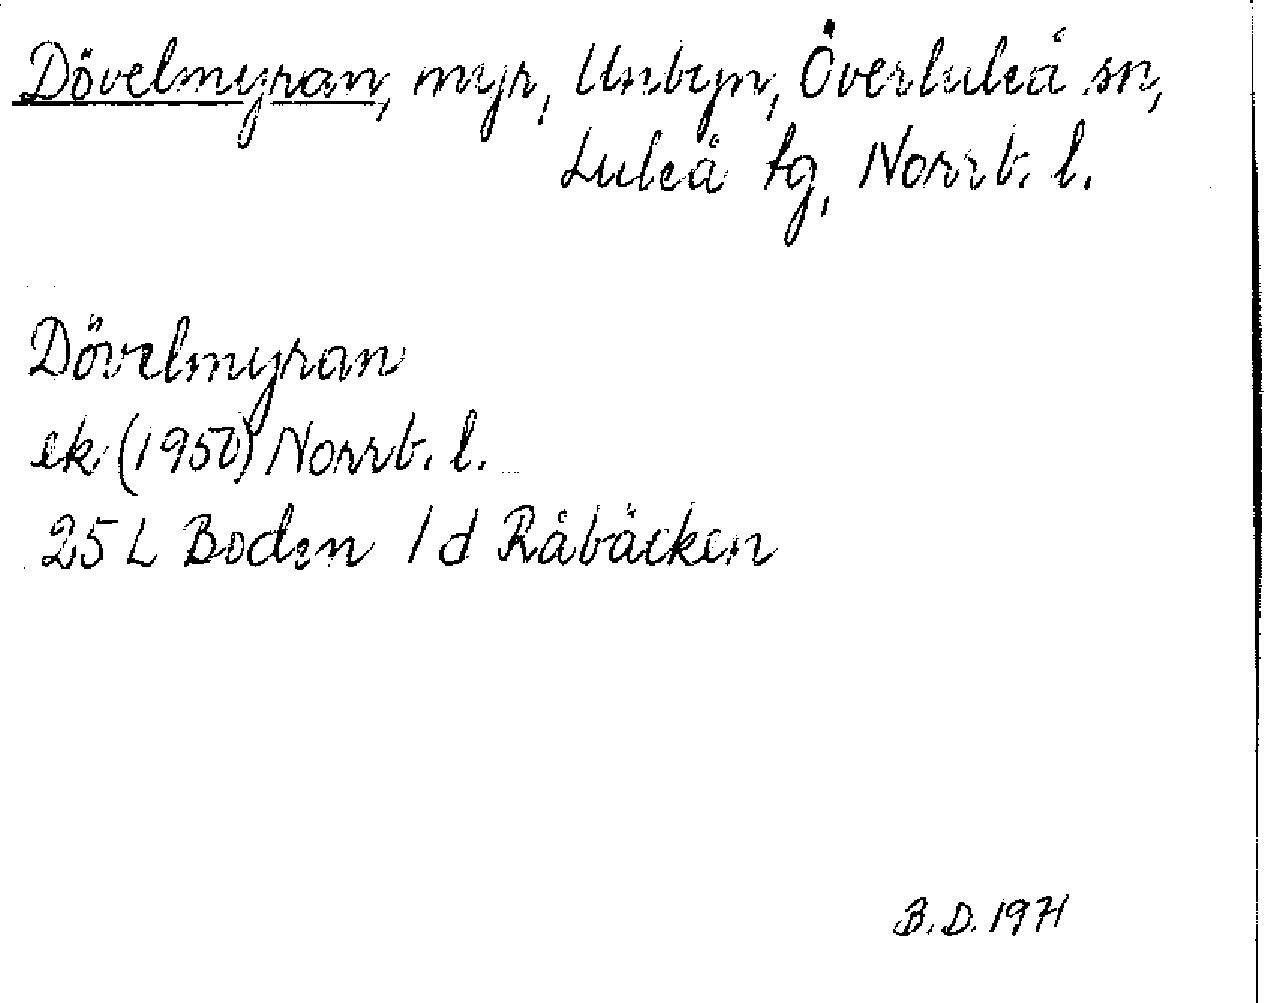 Dövelmyran, myr, Unbyn, Överluleå sn,
Luleå tg, Norrb. l.
Dövelmyran
ek (1950) Norrb. l.
25 L Boden 1 d Råbäcken
B.D. 1971